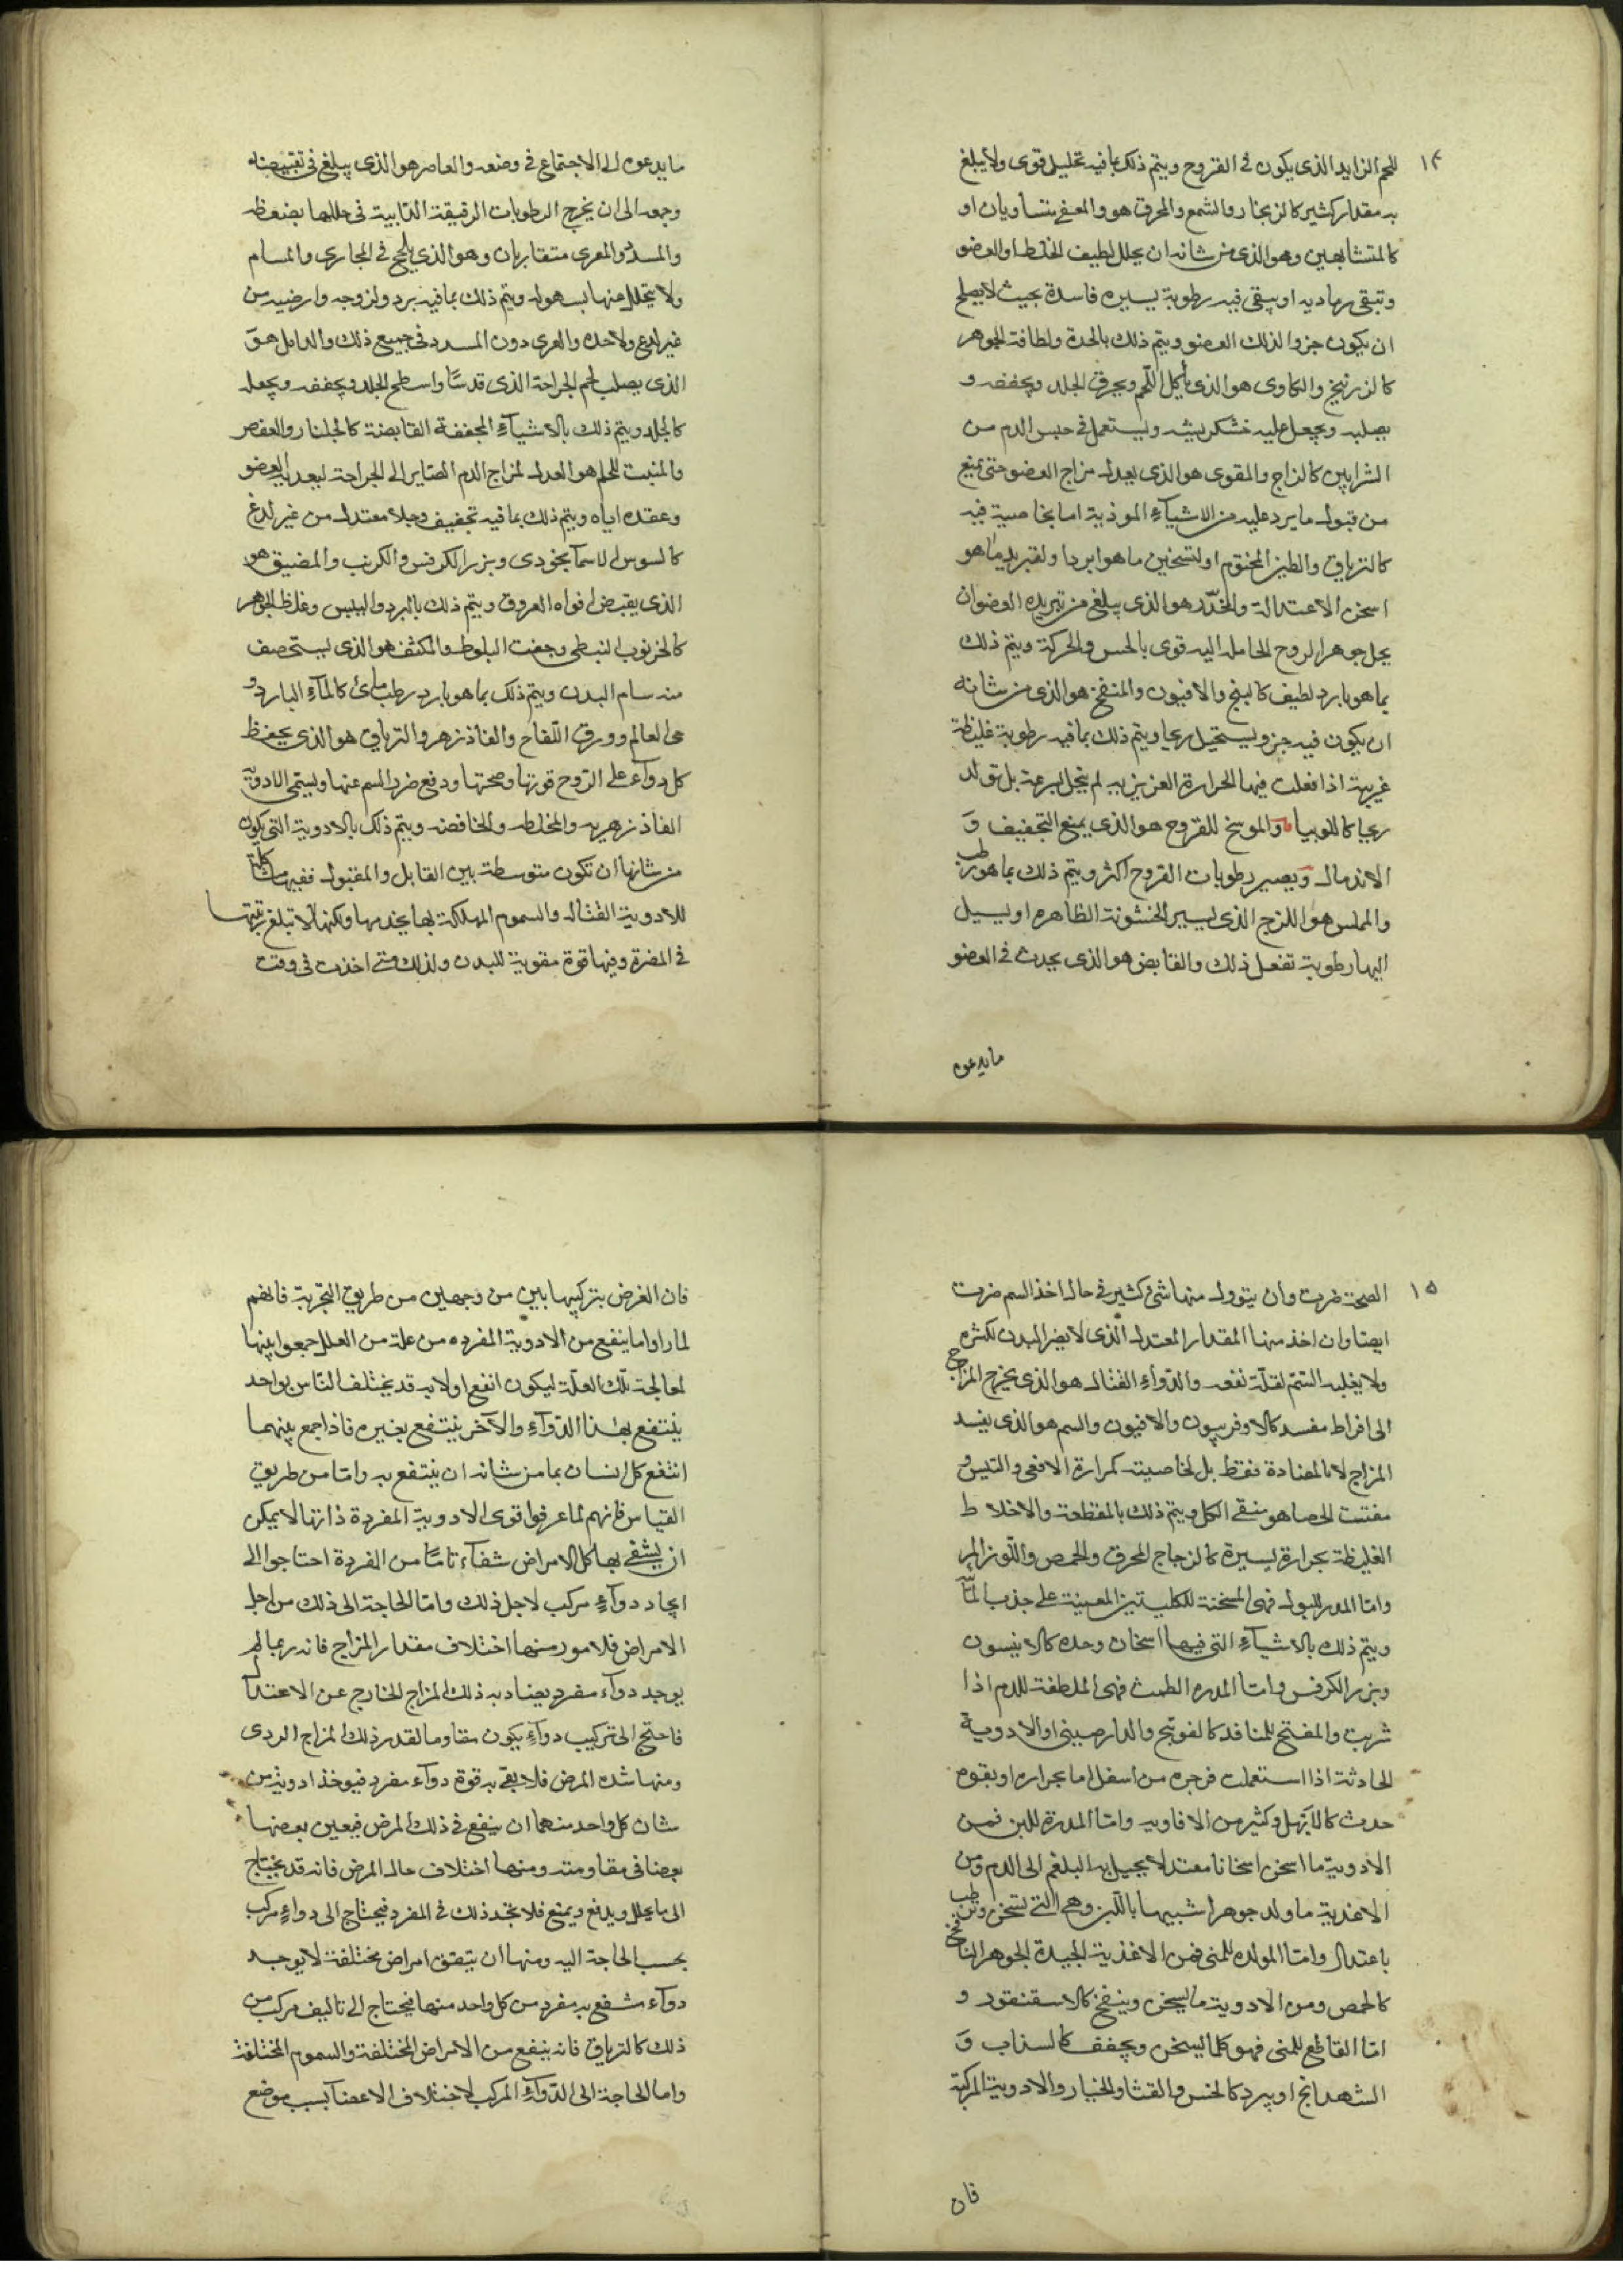 ١٤
للحم الزايد الذى يكون فى القروح ويتم ذلك بما فيه تحليل قوى ولا يبلغ
به مقدار كثير كالزنجار والشمع والمحرق هو والمعفن متساويان او
كالمتشابهين وهو الذى من شانه ان يحلل لطيف الخلط او العضو
وتبقى رماديه او يبقى فيه رطوبة يسيره فاسدة بحيث لا يصلح
ان يكون جزوا لذلك العضو ويتم ذلك بالحدة ولطافة الجوهر
كالزرنيخ والكاوى هو الذى يأكل اللحم ويحرق الجلد ويجففه و
يصلبه ويجعل عليه خشكريشه ويستعمل فى حبس الدم من
الشرايين كالزاج والمقوى هو الذى يعدل مزاج العضو حتى يمنع
من قبول ما يرد عليه من الاشيآء الموذية اما بخاصية فيه
كالترياق والطين المختوم او لتسخين ما هو ابرد او لتبريد ما هو
اسخن الاعتدالة والمخدّر هو الذى يبلغ من تبريده العضو ان
يحل جوهر الروح الحامله اليه قوى بالحس والحركة ويتم ذلك
بما هو بارد لطيف كالبنج والافيون والمنفخ هو الذى من شانه
ان يكون فيه جزو يستحيل ريحا ويتم ذلك بما فيه رطوبة غليظة
غريبة اذا فعلت فيها الحرارة الغريزيه لم يتحل بسرعة بل تولد
ريحا كاللوبيا والموسخ للقروح هو الذى يمنع التجفيف وَ
الاندمال وَيصير رطوبات القروح اكثر ويتم ذلك بما هو رطب
والمملس هو اللزج الذى يسير الخشونة الظاهره او يسيل
اليها رطوبة تفعل ذلك والقابض هو الذى يحدث فى العضو
ما يدعوه
ما يدعوه الى الاجتماع فى وضعه والعاصر هو الذى يبلغ فى تقبيضه
وجمعه الى ان يخرج الرطوبات الرقيقة الذايبة فى خللها بضغطه
والمسدد والمغرى متقاربان وهو الذى يلحج فى المجارى والمسام
ولا يتحلل منها بسهوله ويتم ذلك بما فيه برد ولزوجه وارضيه من
غير لدغ ولا حده والمغرى دون المسدد فى جميع ذلك والدامل هوَ
الذى يصلب لحم الجراحة الذى قد ساوا سطح الجلد ويجففه ويجعله
كالجلد ويتم ذلك بالاشيآء المجففة القابضة كالجلنار والعفص
والمنبت للحم هو المعدل لمزاج الدم الصاير الى الجراحة ليعد به العضو
وعقده اياه ويتم ذلك بما فيه تجفيف وجلا معتدل من غير لدغ
كالسوس لا سمآنجونى وبزر الكرفس والكرنب والمضيق هو
الذى يقبض افواه العروق ويتم ذلك بالبرد واليبس وغلظ الجوهر
كالخرنوب النبطى وجفت البلوط والمكثف هو الذى يستحصف
منه مسام البدن ويتم ذلك بما هو بارد رطب مائى كالمآء البارد و
حى العالم وورق اللّفاح والفاذزهر والترياق هو الذى يحفظ
كل دوآء على الرّوح قوتها وصحتها ودفع ضرر السم عنها ويسمى الادويّة
الفاذزهريه والمخلطه والخافضه ويتم ذلك بالادوية التى يكون
من شانها ان تكون متوسطة بين القابل والمقبول ففيها مشاكلة
للادوية القتاله والسموم المهلكة بها يجذبها ولكنها لا تبلغ رتبتها
فى المضرة وفيها قوة مقوية للبدن ولذلك متى اخذت فى وقت
١٥
الصحة ضرت وان يتوول منها شئ كثير فى حال اخذ السم ضرت
ايضا وان اخذ منها المقدار المعتدل الذى لا يضر البدن لكثره
ولا يغلبه السّمّ لقلّة نفعه والدّوآء القتال هو الذى يخرج المزاج
الى افراط مفسد كالاوفربيون والافيون والسم هو الذى يفسد
المزاج لا بالمضادة فقط بل لخاصيته كمرارة الافعى والتيس و
مفتت الحصا هو منقى الكلى ويتم ذلك بالمقطعة والاخلاط
الغليظة بحرارة يسيرة كالزجاج المحرق والحمص واللّوز المر
وامّا المدر للبول فهى المسخنة للكليتين المعينة على جذب المآئيّة
ويتم ذلك بالاشيآء التى فيها اسخان وحده كالانيسون
وبزر الكرفس وامّا المدره الطمث فهى الملطفة للدم اذا
شربت والمفتح للمنافذ كالفوتنج والدارصينى او الادوية
الحادثة اذا استعملت فرجره من اسفل اما بحراره او بقوه
حدث كالابَهل وكثير من الافاويه وامّا المدرة للبن فمن
الادوية ما اسخن اسخانا معتدلا يحيل به البلغم الى الدم ومن
الاغذية ما ولد جوهرا شبيها باللّبن وهى التى تسخن وترطب
باعتدال وامّا المولده للمنى فمن الاغذية الجيدة الجوهر النافخ
كالحمص ومن الادوية ما يسخن وينفخ كالاسقنقور و
امّا القاطع للمنى فهو كلما يسخن ويجفف كالسذاب وَ
الشهدانج او يبرد كالخس والقثا والخيار والادوية المركبة
فان
فان الغرض بتركيبها بين من وجهين من طريق التّجربة فانهم
لما راوا ما ينفع من الادوية المفرده من علة من العلل جمعوا بينها
لمعالجة تلك العلّة ليكون انفع اولانه قد يختلف النّاس بواحد
ينتفع بهذا الدّوآء والآخر ينتفع بغيره فاذا جمع بينهما
انتفع كل انسان بما من شانه ان ينتفع به وامّا من طريق
القياس فانهم لما عرفوا قوى الادوية المفردة ذاتها لا يمكن
ان يشفى بها كل الامراض شفآء تامًا من المفردة احتاجوا الى
ايجاد دوآءٍ مركب لاجل ذلك وامّا الحاجة الى ذلك من اجل
الامراض فلامور منها اختلاف مقدار المزاج فانه ربما لم
يوجد دوآء مفرد يضاد به ذلك المزاج الخارج عن الاعتدا
فاحتج الى تركيب دوآءٍ يكون مقاوما لقدر ذلك المزاج الردى
ومنها شده المرض فلا يفى به قوة دوآء مفرد فيوخذ ادوية من
شان كل واحد منهما ان ينفع فى ذلك المرض فيعين بعضها
بعضا فى مقاومته ومنها اختلاف حال المرض فانه قد يحتاج
الى ما يحلل ويدفع ويمنع فلا يجد ذلك فى المفرد فيحتاج الى دوآءٍ مركب
بحسب الحاجة اليه ومنها ان يتفق امراض مختلفة لا يوجد
دوآء منتفع به مفرد من كل واحد منها فيحتاج الى تاليف مركب من
ذلك كالترياق فانه ينفع من الامراض المختلفة والسموم المختلفة
واما الحاجة الى الدّوآء المركب لاختلاف الاعضآ بسبب موضع